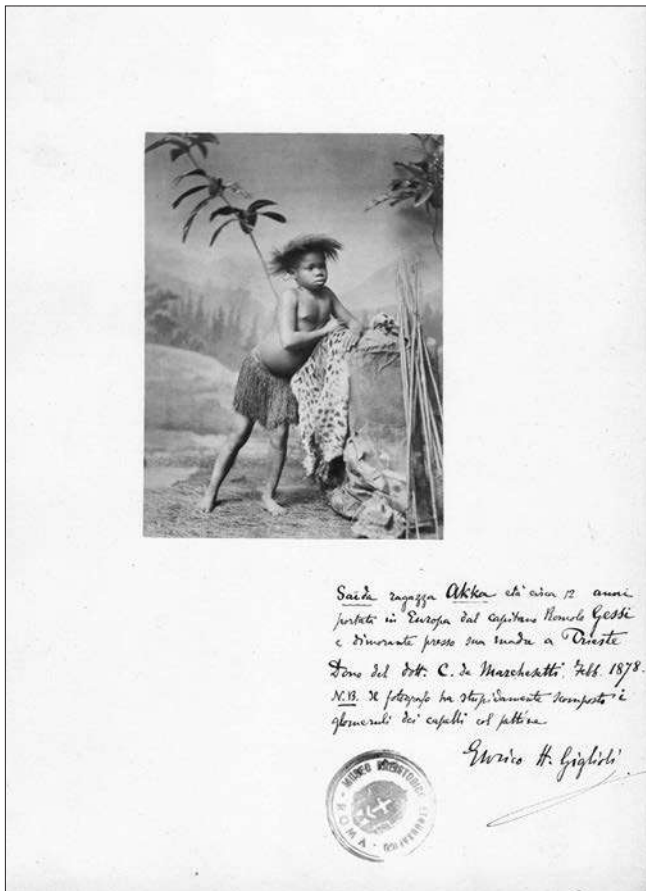 Saida ragazza Akka età circa 12 anni
portata in Europa dal capitano Romolo Gessi
e dimorante presso sua madre a Trieste
Dono del dott. C. de Marchesetti, Febb. 1878.
N.B. Il fotografo ha stupidamente scomposto i
glomeruli dei capelli col pettine
Enrico H. Giglioli
MUSEO PREISTORICO
ROMA